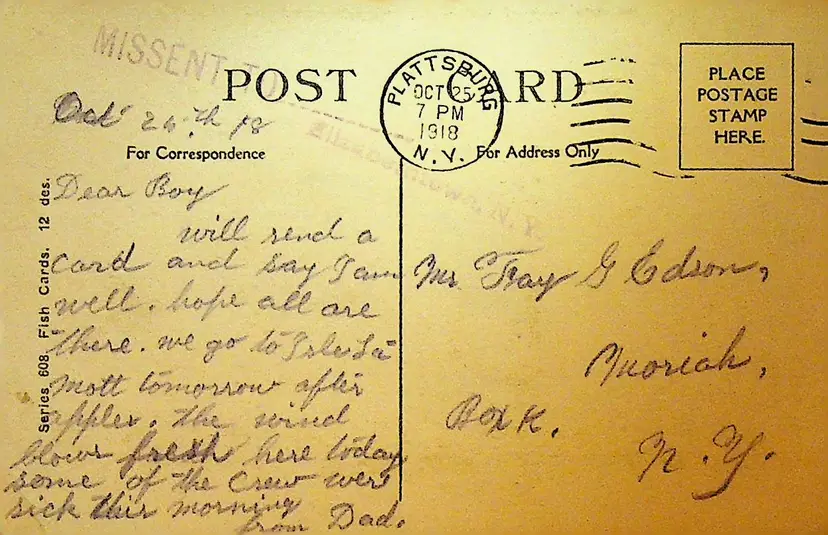 MISSENT TO
Elizabethtown, N.Y.
POST CARD
PLATTSBURG
OCT 25
7 PM
1918
N.Y.
PLACE
POSTAGE
STAMP
HERE.
For Correspondence
For Address Only
Series 608. Fish Cards. 12 des.
Oct 24th 18
Dear Boy
will send a
card and say I am
well. hope all are
there. we go to Isle La
Mott tomorrow after
apples. the wind
blows fresh here today
some of the crew were
sick this morning
from Dad.
Mr Fay G Edson,
Moriah,
Box K.
N.Y.